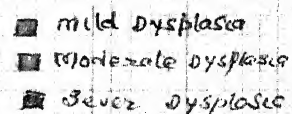 mild Dysplasia
Moderate Dysplasia
Sever Dysplasia